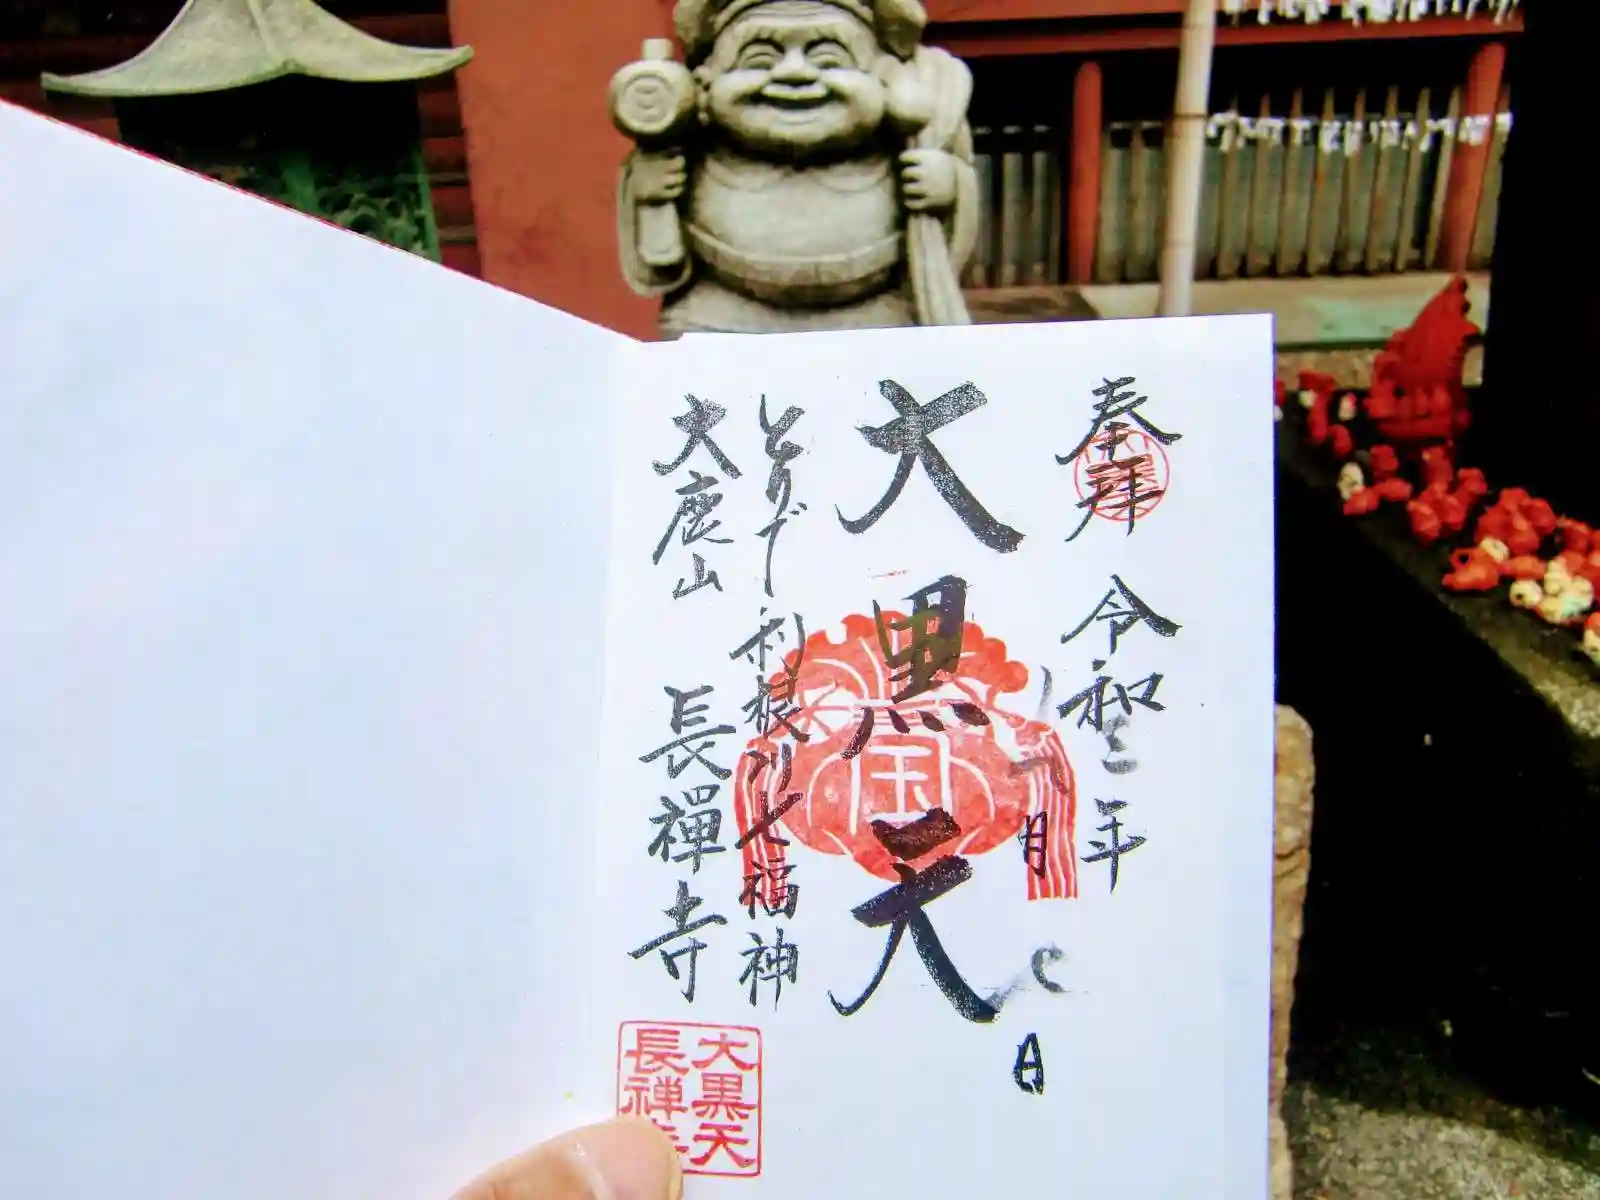 奉拝 令和三年
月 日
大黒天
とりで利根川七福神
大鹿山 長禪寺
宝
大黒天
長禅寺